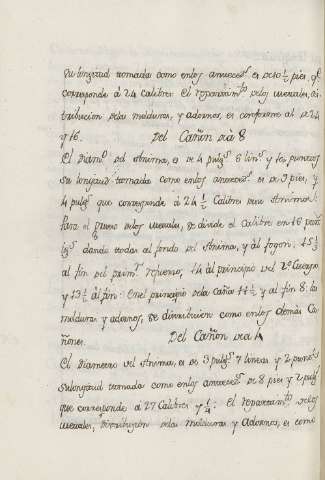 Su longitud tomada como enlos anteced.s es de 10 1/2 pies, q.e
corresponde à 24 Calibres. El repartim.to delos metales, dis
tribucion delas molduras, y adornos, es conforme al de 24
y 16.
Del Cañon de à 8
El Diam.o del Anima, es de 4 pulg.s 6 lin.s y
Su longitud tomada como enlos anteced.s es de 9 pies, y
4 pulg.s que corresponde à 24 1/2 Calibres
Para el grueso delos metales, se divide el Calibre en 16 partes
dando todas al fondo del Anima, y al fogon: 15 1/2
al fin del prim.r refuerzo, 14 al principio del 2.o Cuerpo
y 13 1/2 al fin: Enel principio dela Caña 11 1/2 y al fin 8: las
molduras y adornos, se distribuien como enlos demàs Ca
ñones.
Del Cañon de à 4
El Diametro del Anima, es de 3 pulg.s 7 lineas y 2 punt.s
Su longitud tomada como enlos anteced.s de 8 pies y 2 pulg.s
que corresponde à 27 Calibres y 1/4. El repartim.to delos
metales, distribucion delas molduras y Adornos, es como